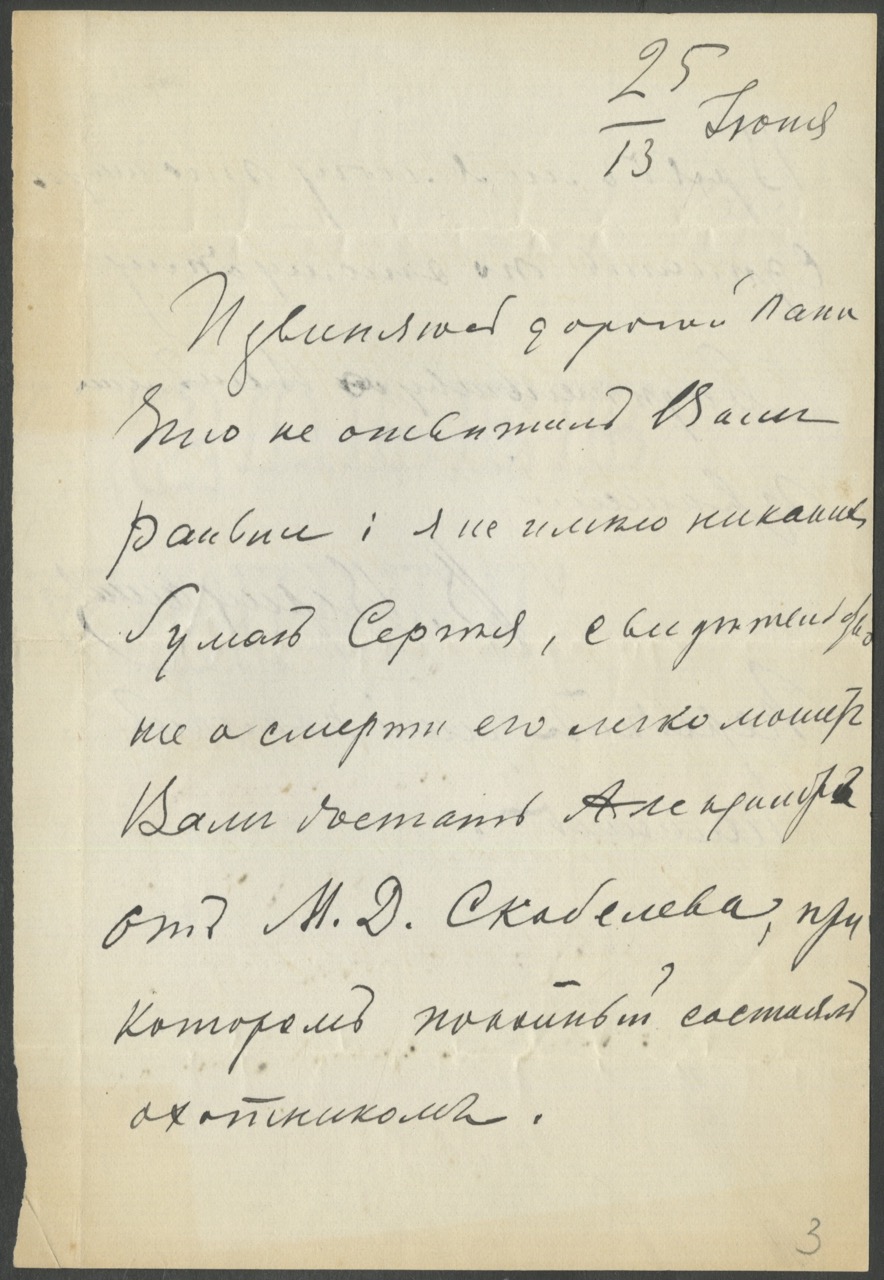 25
13 Іюня
Извиняюсь дорогой Папа
что не отвѣтилъ Вамъ
ранѣе; я не имѣю никакихъ
бумагъ Сергѣя, свидѣтельство
же о смерти его легко может
Вамъ достать Александръ
отъ М. Д. Скобелева, при
которомъ покойный состоялъ
охотникомъ.
3